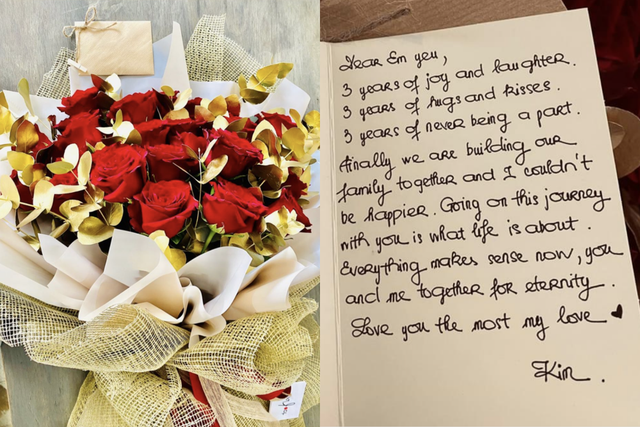 Dear Em yeu,
3 years of joy and laughter.
3 years of hugs and kisses.
3 years of never being a part.
Finally we are building our
family together and I couldn't
be happier. Going on this journey
with you is what life is about.
Everything makes sense now, you
and me together for eternity.
Love you the most my love ♥
Kim.